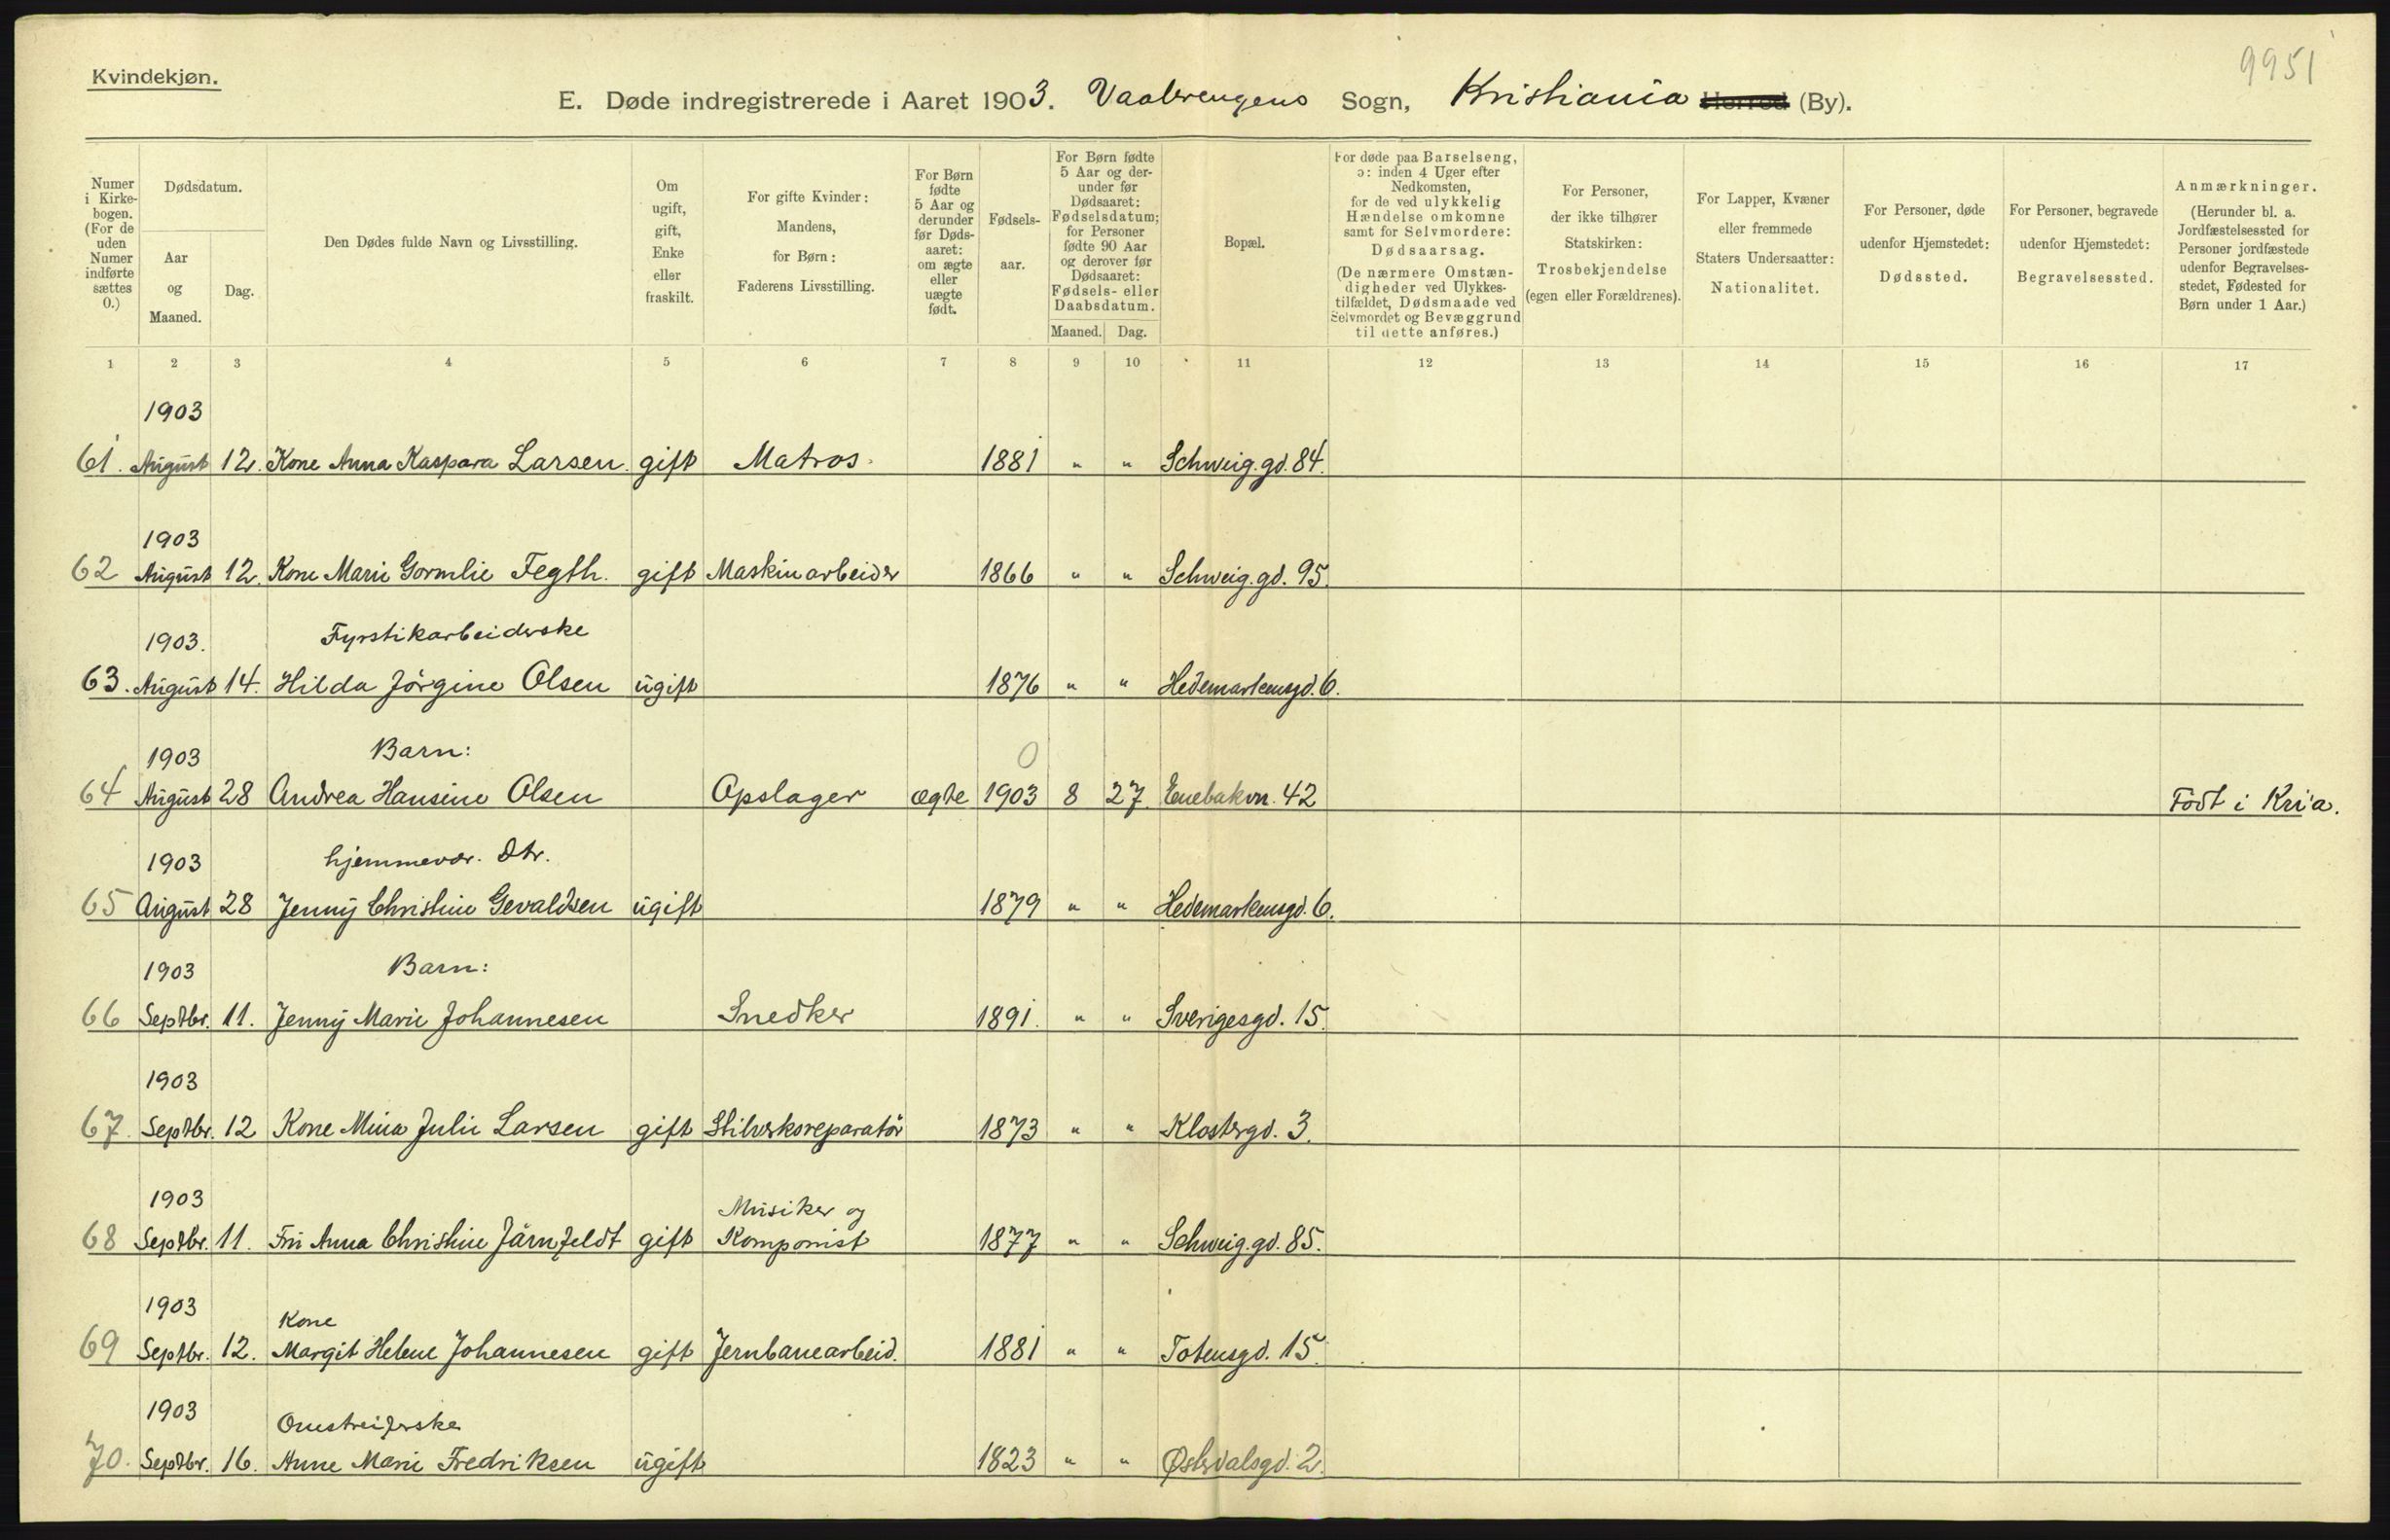 9951
Kvindekjøn.
E. Døde indregistrerede i Aaret 1903. Vaalerengens Sogn, Kristiania Herred (By).
Numer i Kirke-bogen. (For de uden Numer indførte sættes 0.)
Dødsdatum.
Aar og Maaned.
Dag.
Den Dødes fulde Navn og Livsstilling.
Om ugift, gift, Enke eller fraskilt.
For gifte Kvinder: Mandens, for Børn: Faderens Livsstilling.
For Børn fødte 5 Aar og derunder før Døds-aaret: om ægte eller uægte født.
Fødsels-aar.
For Børn fødte 5 Aar og der-under før Dødsaaret: Fødselsdatum; for Personer fødte 90 Aar og derover før Dødsaaret: Fødsels- eller Daabsdatum.
Maaned. Dag.
Bopæl.
For døde paa Barselseng, ɔ: inden 4 Uger efter Nedkomsten, for de ved ulykkelig Hændelse omkomne samt for Selvmordere: Dødsaarsag. (De nærmere Omstæn-digheder ved Ulykkes-tilfældet, Dødsmaade ved Selvmordet og Bevæggrund til dette anføres.)
For Personer, der ikke tilhører Statskirken: Trosbekjendelse (egen eller Forældrenes).
For Lapper, Kvæner eller fremmede Staters Undersaatter: Nationalitet.
For Personer, døde udenfor Hjemstedet: Dødssted.
For Personer, begravede udenfor Hjemstedet: Begravelsessted.
Anmærkninger. (Herunder bl. a. Jordfæstelsessted for Personer jordfæstede udenfor Begravelses-stedet, Fødested for Børn under 1 Aar.)
1 2 3 4 5 6 7 8 9 10 11 12 13 14 15 16 17
1903
61. August 12. Kone Anna Kaspara Larsen. gift Matros. 1881 " " Schweig.gd. 84.
1903
62 August 12. Kone Marie Gormlie Fegth. gift Maskinarbeider 1866 " " Schweig.gd. 95.
1903. Fyrstikarbeiderske
63. August 14. Hilda Jörgine Olsen ugift 1876 " " Hedemarkensgd. 6.
1903 Barn: 0
64 August 28 Andrea Hansine Olsen Opslager ægte 1903 8 27 Enebakvn. 42 Födt i Kri'a.
1903 hjemmevær. Dtr.
65 August 28 Jenny Christine Gevaldsen ugift 1879 " " Hedemarkensgd. 6.
1903 Barn:
66 Septbr. 11. Jenny Marie Johannesen Snedker 1891. " " Sverigesgd. 15.
1903
67. Septbr. 12 Kone Mina Julie Larsen gift 1873 " " Klostergd. 3.
1903 Musiker og
68 Septbr. 11. Fru Anna Christine Järnfeldt gift Komponist 1877 " " Schweig.gd. 85.
1903 Kone
69 Septbr. 12. Margit Helene Johannesen gift Jernbanearbeid. 1881 " " Totensgd. 15.
1903 Omstreiferske
70. Septbr. 16. Anne Marie Fredriksen ugift 1823 " " Østerdalsgd. 2.